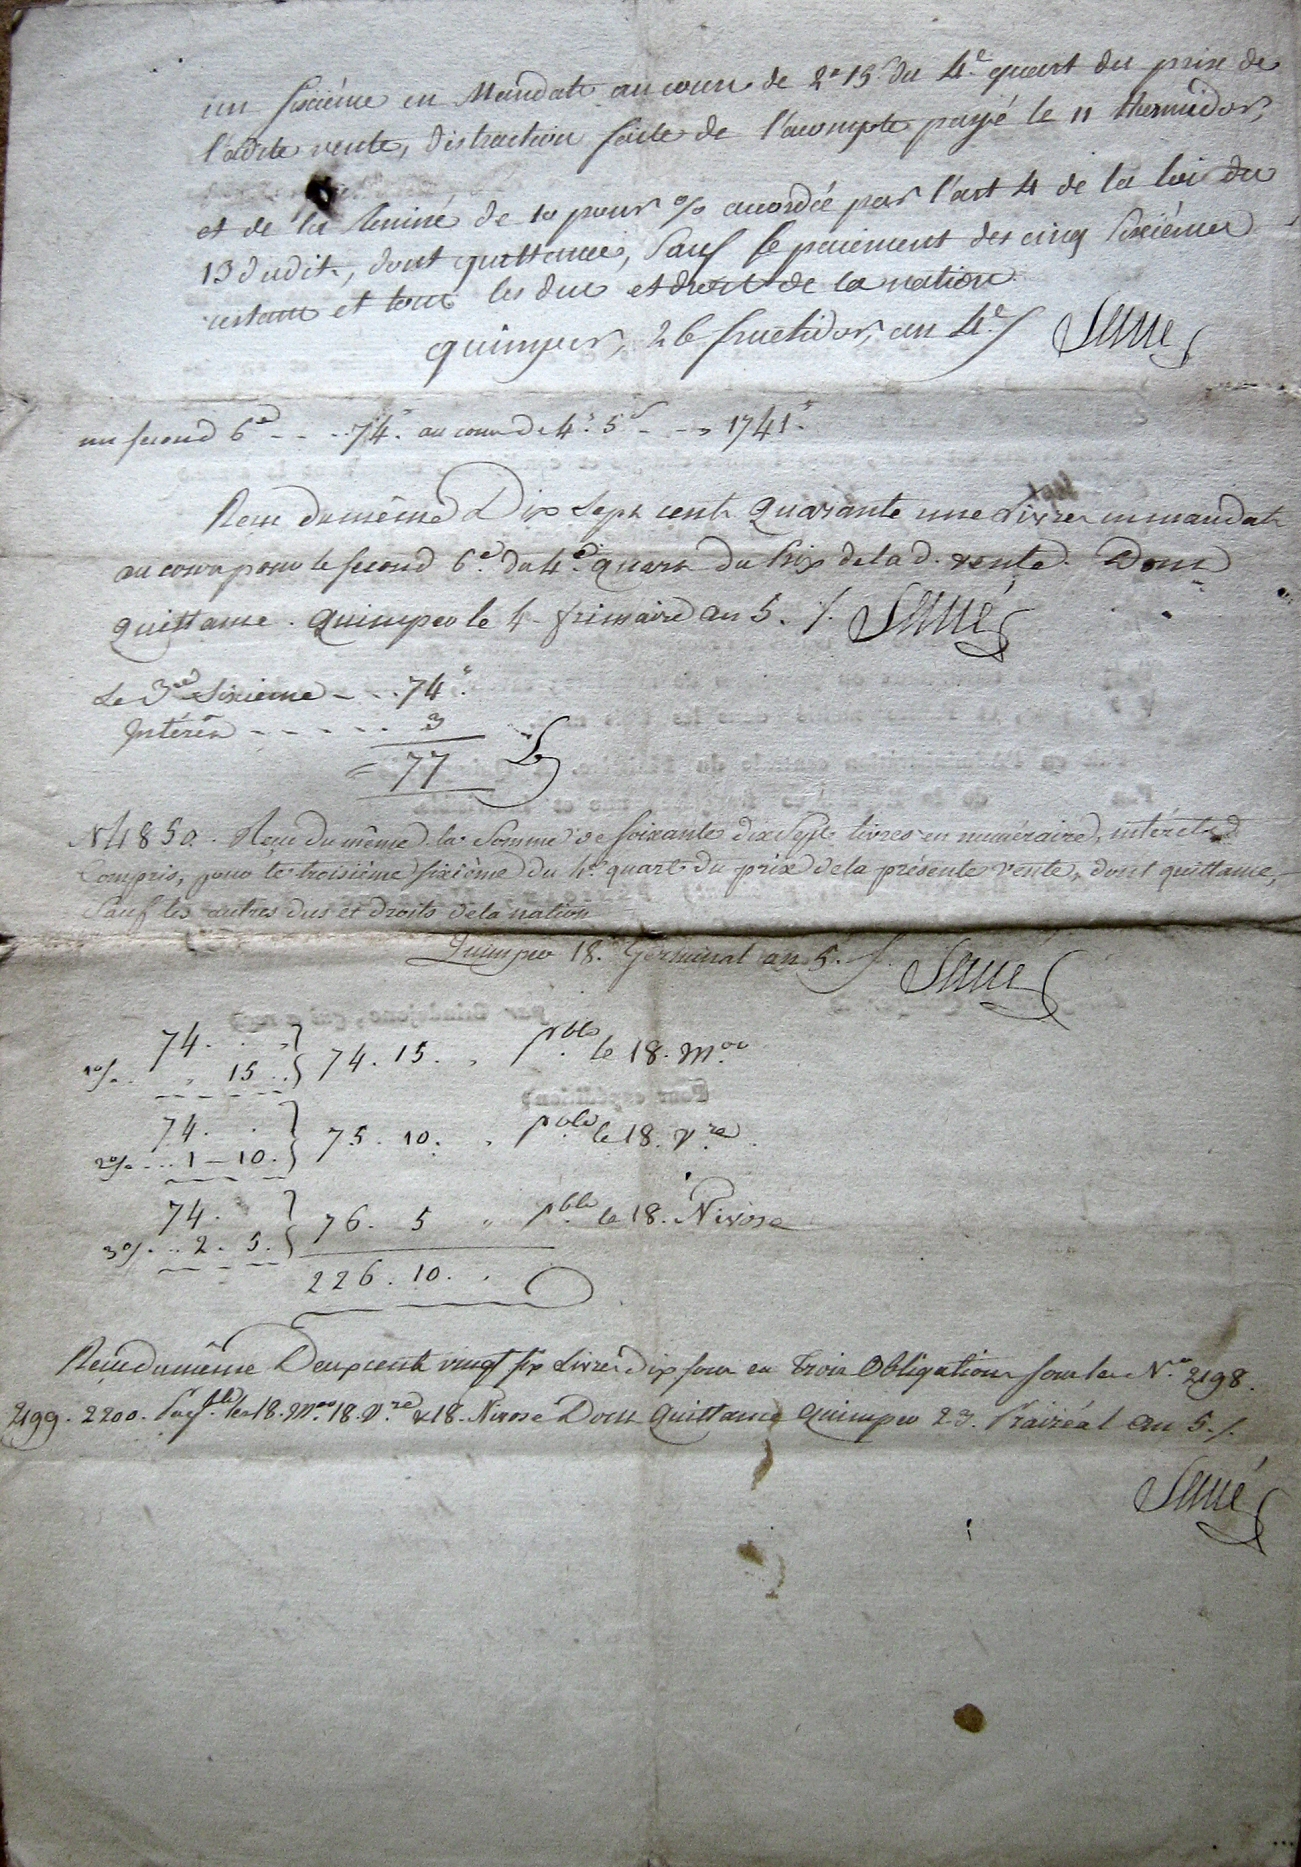 un sixième en Mandats au cours de 2# 15s du 4e quart du prix de
l'adite vente, distraction faite de l'acompte payé le 11 thermidor,
et de la Remise de 10 pour % accordée par l'art 4 de la loi du
13 dudit, dont quittance, sauf le paiement des cinq sixièmes
restans et tous les dus et droits de la nation.
quimper, 26 fructidor, an 4e /. Sané
un second 6e - - - 74# au cours de 4# 5s - - 1741#
Reçu du même Dix Sept cent Quarante une Livres en mandats
au cours pour le second 6e du 4e quart du Prix de la d. vente. Dont
quittance. Quimper le 4 frimaire an 5. /. Sané
Le 3e Sixieme - - 74#
Intérêts - - - - - 3
77
N 4850. Reçu du même la Somme de soixante dix Sept livres en numéraire, intérêts
Compris, pour le troisième sixième du 4e quart du prix de la présente vente, dont quittance,
Sauf les autres dus et droits de la nation
Quimper 18. Germinal an 5. /. Sané
74. . .
1% . . 15 . } 74. 15. . pble le 18. Mor
74. . .
2% . . 1 - 10. } 75. 10. . pble le 18. Vre
74. .
3% . . 2. 5. } 76. 5 " pble le 18. Nivose
226. 10. .
Reçu du même Deux cent vingt six Livres Dix sous en Trois Obligations sous les Nos 2198.
2199. 2200. Payables les 18. Mor 18. Vre & 18. Nivose Dont Quittance Quimper 23. Prairéal an 5. /.
Sané